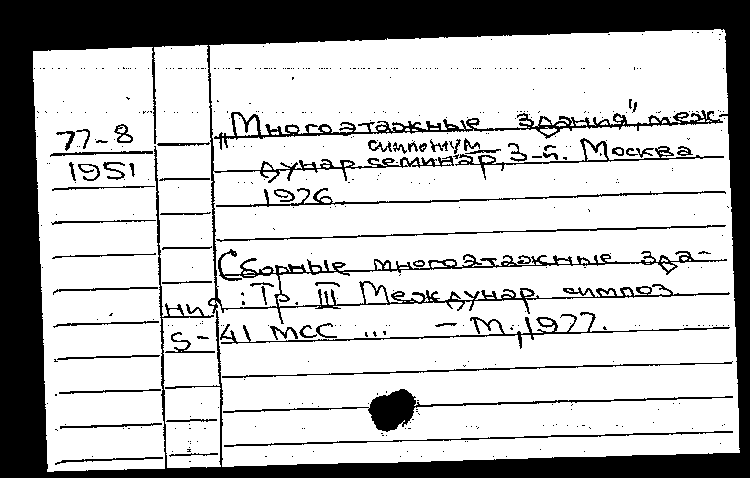 77-8
1951
"Многоэтажные здания", меж-
симпозиум
дунар. семинар, 3-й. Москва.
1976.
Сборные многоэтажные зда-
ния : Тр. III Междунар. симпоз.
S-41 МСС ... - М., 1977.